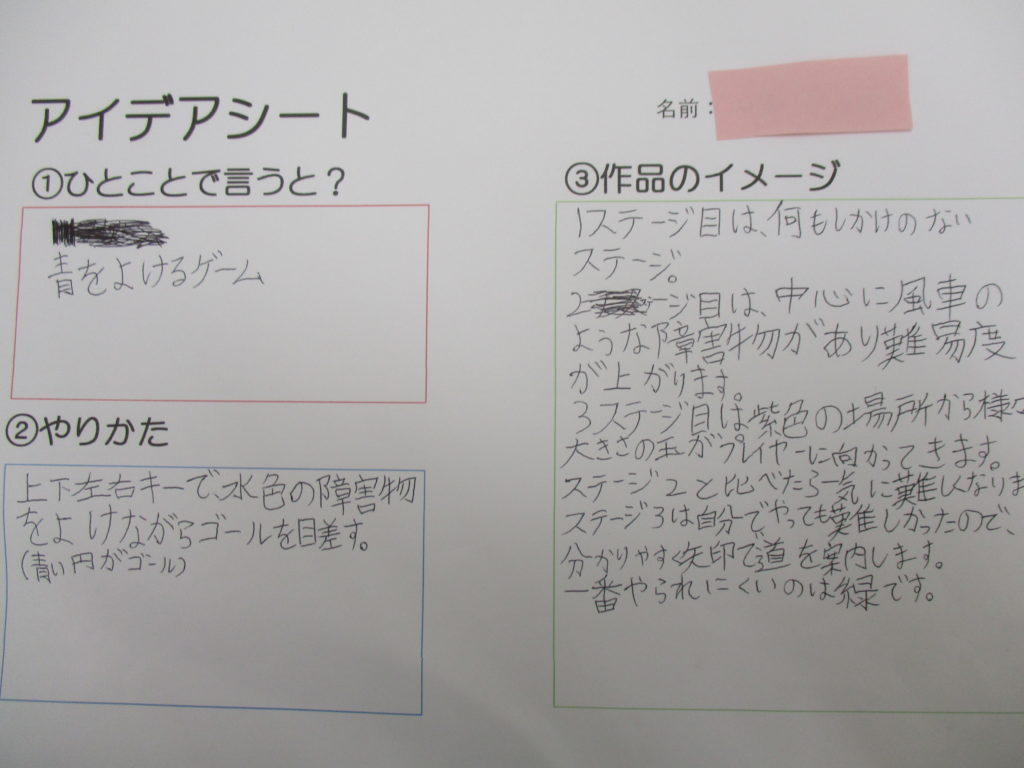 アイデアシート
名前：
①ひとことで言うと？
青をよけるゲーム
②やりかた
上下左右キーで、水色の障害物
をよけながらゴールを目差す。
（青い円がゴール）
③作品のイメージ
1ステージ目は、何もしかけのない
ステージ。
2 ージ目は、中心に風車の
ような障害物があり難易度
が上がります。
3ステージ目は紫色の場所から様々
大きさの玉がプレイヤーに向かってきます。
ステージ2と比べたら一気に難しくなりま
ステージ3は自分でやっても難しかったので、
分かりやすく矢印で道を案内します。
一番やられにくいのは緑です。